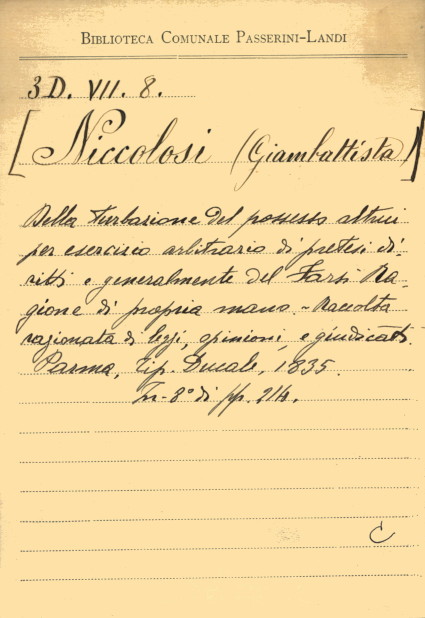 BIBLIOTECA COMUNALE PASSERINI-LANDI
3 D. VII. 8.
[Niccolosi (Giambattista)]
Della turbazione del possesso altrui
per esercizio arbitrario di pretesi di-
ritti e generalmente del Farsi Ra-
gione di propria mano. - Raccolta
razionata di leggi, opinioni, e giudicati.
Parma, Tip. Ducale, 1835.
In-8° di pp. 214.
C